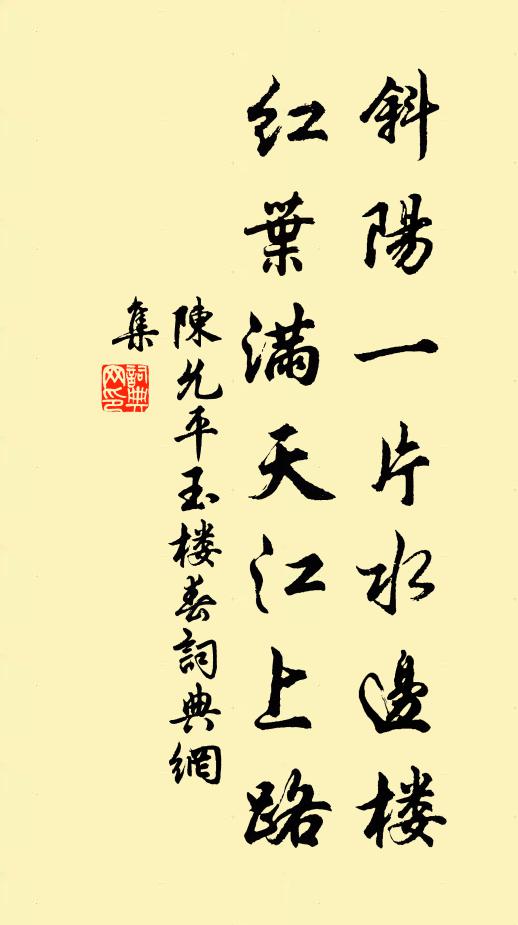 斜陽一片水邊楼
紅葉滿天江上路
陳允平玉楼春詞典網
集
詞典
网印